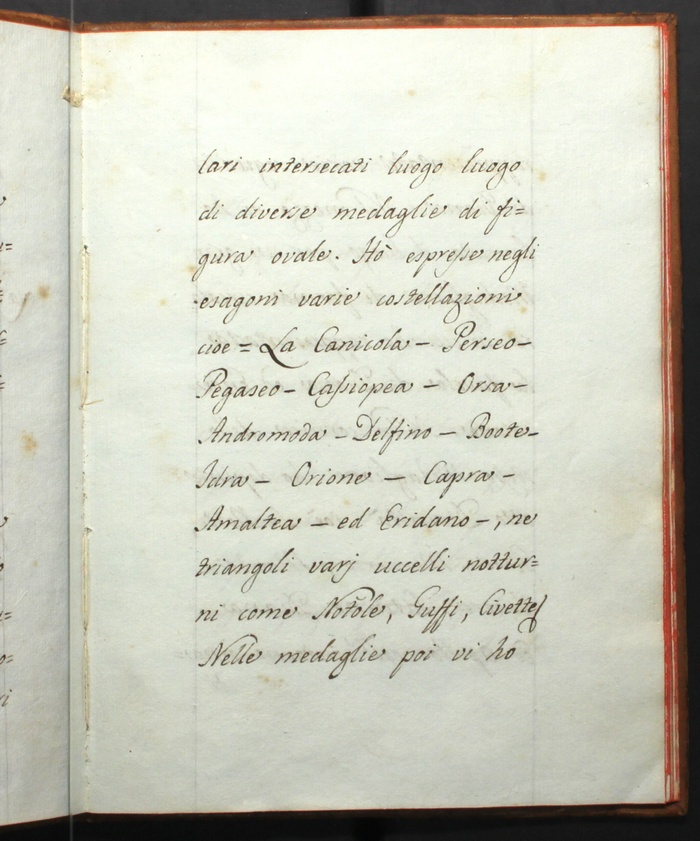 lari intersecati luogo luogo
di diverse medaglie di fi=
gura ovale. Hò espresse negli
esagoni varie costellazioni
cioe = La Canicola – Perseo –
Pegaseo – Cassiopea – Orsa –
Andromoda – Delfino – Boote –
Idra – Orione – Capra –
Amaltea – ed Eridano –, ne
triangoli varj uccelli nottur=
ni come Notole, Guffi, Civette
Nelle medaglie poi vi ho